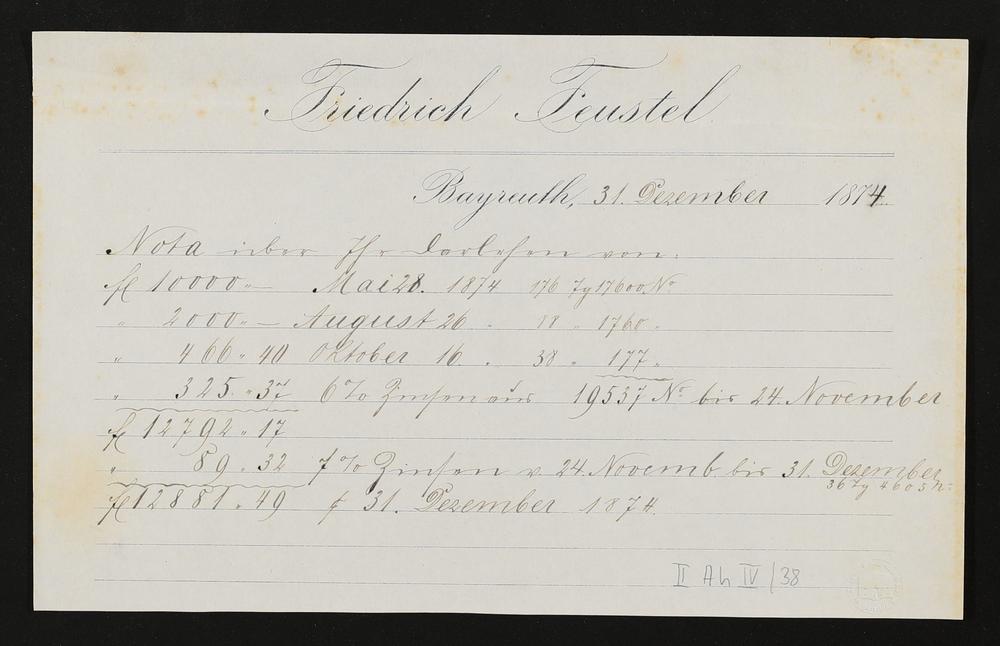 Friedrich Feustel
Bayreuth, 31. Dezember 1874.
Nota über Ihr Darlehen von:
fl 10000 „ — Mai 28. 1874 176 Tg 17600 No
„ 2000 „ — August 26 „ 88 „ 1760 „
„ 466 „ 40 Oktober 16 „ 38 „ 177 „
„ 325 „ 37 6% Zinsen aus 19537 No bis 24. November
fl 12792 „ 17
„ 89 „ 32 7% Zinsen v. 24. Novemb. bis 31. Dezember
36 Tg 4605 No
fl 12881 „ 49 p 31. Dezember 1874.
II Ah IV / 38